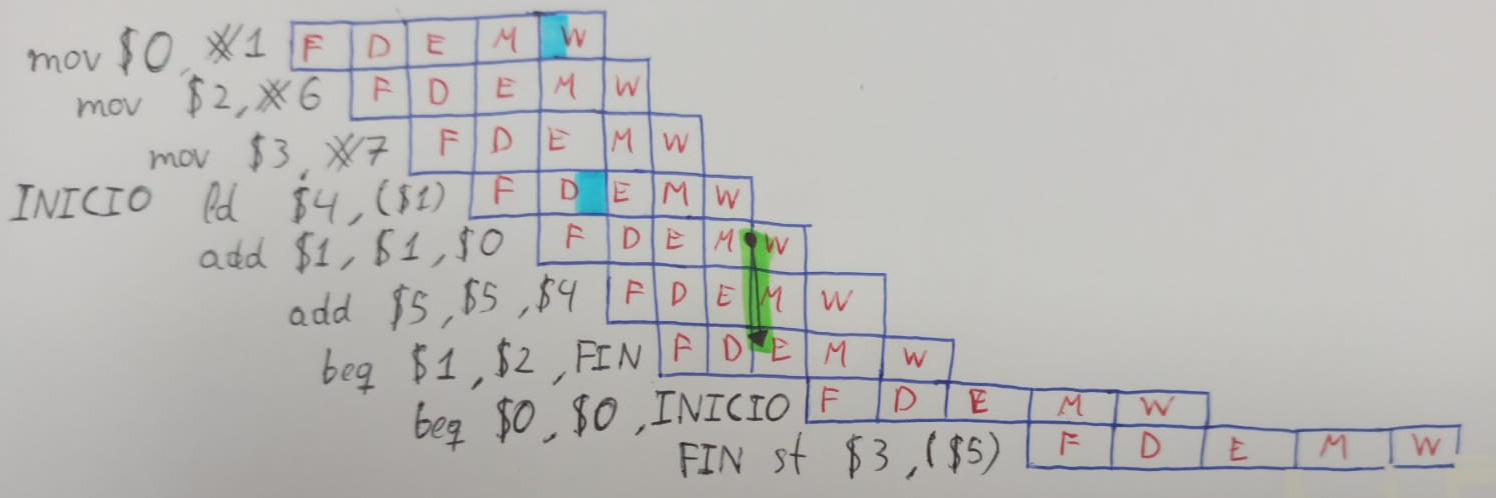 mov $0, #1 F D E M W
mov $2, #6 F D E M W
mov $3, #7 F D E M W
INICIO ld $4, ($1) F D E M W
add $1, $1, $0 F D E M W
add $5, $5, $4 F D E M W
beq $1, $2, FIN F D E M W
beq $0, $0, INICIO F D E M W
FIN st $3, ($5) F D E M W